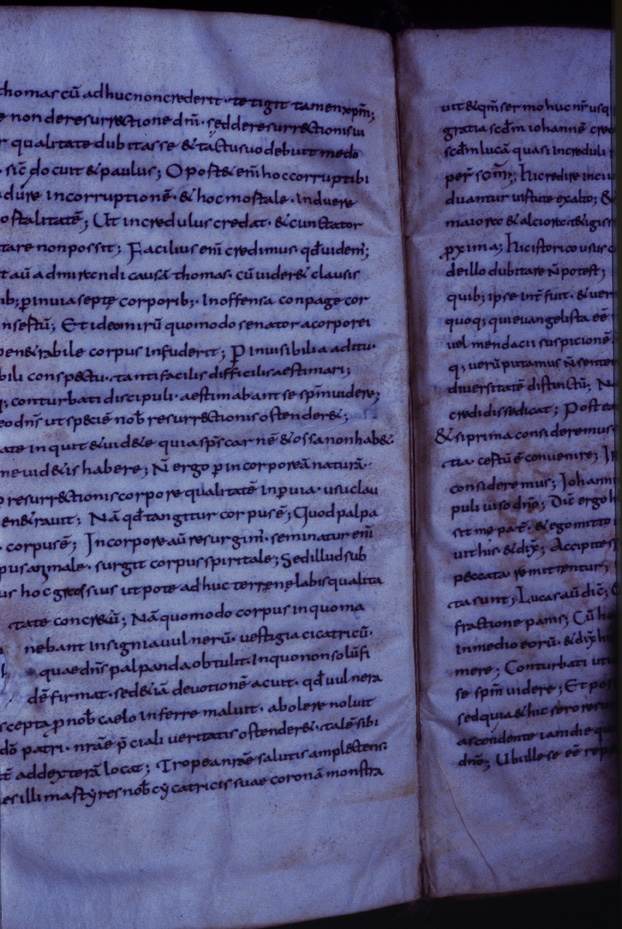 thomas cū adhuc non crederit · tetigit tamen xpm̄;
non de resurrectione dn̄i · sed de resurrectionis ui
qualitate dubitasse & tactu suo debuit me do
· sic̄ docuit & paulus; Oportet enī hoc corruptibi
duere incorruptionē · & hoc mortale · induere
ortalitatē; Ut incredulus credat · & cunctator
tare non possit; Facilius enī credimus · qđ uidem;
t aū admirandi causā thomas · cū uider& clausis
ib; p inuia septe corporib; · Inoffensa conpage cor
nsertū; Et ideo mirū quomodo se natura corporei
pen&rabile corpus infuderit; p inuisibilia aditu·
bili conspectu · tantı facilis difficilis aestimari;
q; conturbati discipuli · aestimabant se spm̄ uidere;
eo dns̄ ut speciē nob̄ resurrectionis ostender&;
ate inquit & uid&e quia sps̄ carnē & ossa non hab&
me uid&is habere; N̄ ergo p incorporeā naturā ·
resurrectionis corpore qualitatē inpuia · usu clau
en&rauit; Nā qđ tangitur corpus ē; Quod palpa
· corpus ē; In corpore aū resurgim̄ · seminatur enī
pus animale · surgit corpus spiritale; Sed illud sub
us hoc grossius ut pote adhuc terrenę labis qualita
tate concretū; Nā quomodo corpus in quo ma
nebant insignia uulnerū · uestigia cicatricū ·
quae dns̄ palpanda obtulit. In quo non solū fi
dē firmat · sed &iā deuotionē acuit · qđ uulnera
scepta p nob̄ caelo inferre maluit · abolere noluit
dō patri · nr̄ae p̄ciali ueritatis ostender& · talē sibi
ad dexterā locat; Tropea nr̄ae salutis amplectens
es illi martyres nob̄ cycatricis suae coronā monstra
uit & qm̄ sermo huc nr̄ usq
gratia scdm̄ iohannē cre
scdm̄ lucā quasi increduli
per sōm; hic credire
duantur uirtute exalto; &
maiore & alciore
pxima; hic istorico usus
de illo dubitare n̄ potest;
quib; ipse intfuit · & uer
quoq; qui euangelista eē
uel mendacii suspicionē
q; uerū putamus n̄ senten
diuersitatē distinctū; N
credidisse dicat; Post ea
& si prima consideremus
ctia certū ē conuenire; I
consideremus; Iohann
puli uiso dnō; Dic̄ ergo h
sit me pat̄ · & ego mitto
uit his & dix̄; Accipite
peccata remittentur;
cta sunt; Lucas aū dic̄;
fractione panis; Cū h
in medio eorū · & dix̄
mere; Conturbati
se spm̄ uidere; Et pos
sed quia & hic sero
ascendente iam die qu
dnō; Ubi ille se eē rep